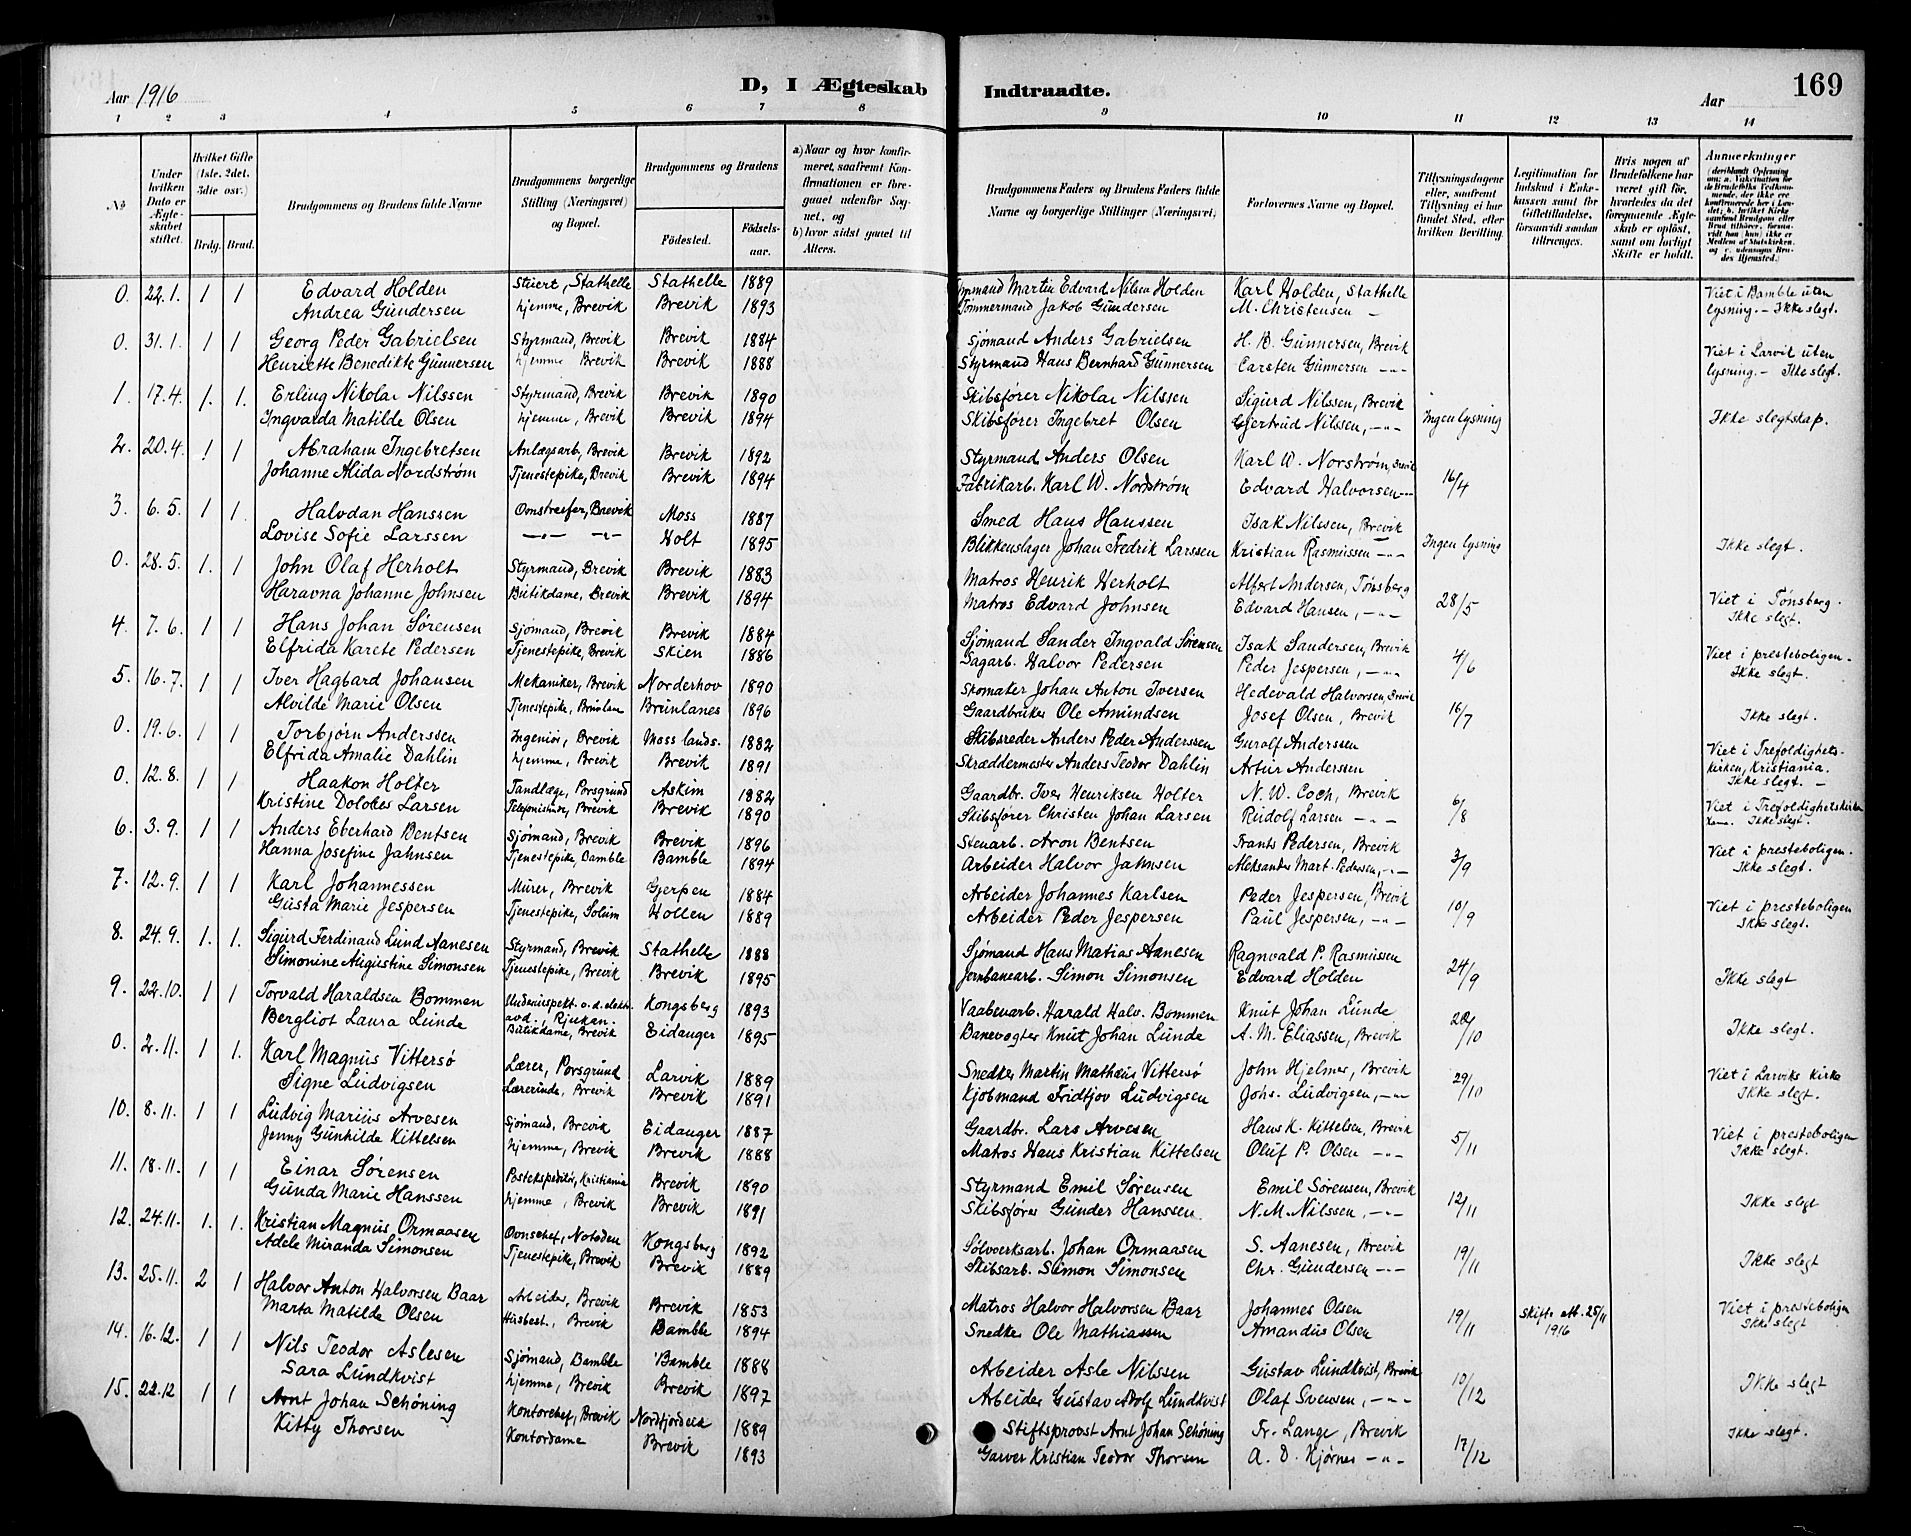 Aar 1916
D, I Ægteskab Indtraadte.
Aar
169
1 2 3 4 5 6 7 8 9 10 11 12 13 14
№
Under hvilken Dato er Ægteskabet stiftet.
Hvilket Gifte (1ste, 2det, 3die osv.)
Brdg. Brud.
Brudgommens og Brudens fulde Navne
Brudgommens borgerlige Stilling (Næringsvei) og Bopæl.
Brudgommens og Brudens
Fødested.
Fødselsaar.
a) Naar og hvor konfirmeret, saafremt Konfirmationen er foregaaet udenfor Sognet, og
b) hvor sidst gaaet til Alters.
Brudgommens Faders og Brudens Faders fulde Navne og borgerlige Stillinger (Næringsvei).
Forlovernes Navne og Bopæl.
Tillysningsdagene eller, saafremt Tillysning ei har fundet Sted, efter hvilken Bevilling.
Legitimation for Indskud i Enkekassen samt for Giftetilladelse, forsaavidt saadan tiltrænges.
Hvis nogen af Brudefolkene har været gift før, hvorledes da det foregaaende Ægteskab er opløst, samt om lovligt Skifte er holdt.
Anmærkninger
0. 22.1. 1 1 Edvard Holden Stuert, Stathelle Stathelle 1889 Martin Edvard Nilsen Holden Karl Holden, Stathelle Viet i Bamble uten
Andrea Gundersen hjemme, Brevik Brevik 1893 Tømmermand Jakob Gundersen M. Christensen — lysning. – Ikke slegt.
0. 31.1. 1 1 Georg Peder Gabrielsen Styrmand, Brevik Brevik 1884 Sjømand Anders Gabrielsen H. B. Gunnersen, Brevik Viet i Larvik uten
Henriette Benedikte Gunnersen hjemme Brevik Brevik 1888 Styrmand Hans Bernhard Gunnersen Carsten Gunnersen -"- lysning. – Ikke slegt.
1. 17.4. 1. 1. Erling Nikolai Nilssen Styrmand, Brevik Brevik 1890 Skibsfører Nikolai Nilssen Sigurd Nilssen, Brevik
Ingvalda Matilde Olsen hjemme, Brevik Brevik 1894 Skibsfører Ingebret Olsen Gjertrud Nilssen, -"- Ingen lysning Ikke slegtskap.
2. 20.4. 1 1 Abraham Ingebretsen Anlægsarb, Brevik Brevik 1892 Styrmand Anders Olsen Karl W. Norstrøm, Brevik
Johanne Alida Nordstrøm Tjenestepike, Brevik Brevik 1894 Fabrikarb. Karl W. Nordstrøm Edvard Halvorsen -"- 16/4
3. 6.5. 1 1. Halvdan Hanssen Brevik Moss 1887 Smed Hans Hanssen Isak Nilssen, Brevik
Lovise Sofie Larssen -"- -"- Holt 1895 Blikkenslager Johan Fredrik Larssen Kristian Rasmussen -"- Ingen lysning Ikke slegt.
0. 28.5. 1. 1 John Olaf Herholt Styrmand, Brevik Brevik 1883 Matros Henrik Herholt Alfert Andersen, Tønsberg
Haravna Johanne Johnsen Butikdame, Brevik Brevik 1894 Matros Edvard Johnsen Edvard Hansen, -"- 28/5 Viet i Tønsberg. Ikke slegt.
4. 7.6. 1 1 Hans Johan Sørensen Sjømand, Brevik Brevik 1884 Sjømand Sander Ingvald Sørensen Isak Sandersen, Brevik
Elfrida Karete Pedersen Tjenestepike, Brevik Skien 1886 Sagarb. Halvor Pedersen Peder Jespersen, -"- 4/6 Viet i presteboligen. Ikke slegt.
5. 16.7. 1 1 Iver Hagbard Johansen Mekaniker, Brevik Norderhov 1890 Skomaker Johan Anton Iversen Hedevald Halvorsen, Brevik
Alvilde Marie Olsen Tjenestepike, Brunlan Brunlanes 1896 Gaardbruker Ole Amundsen Josef Olsen, Brevik 16/7 Ikke slegt.
0. 19.6. 1 1 Torbjørn Anderssen Ingeniør, Brevik Moss lands. 1882 Skibsreder Anders Peder Anderssen Gurolf Anderssen
Elfrida Amalie Dahlin hjemme, Brevik Brevik 1891 Skræddermester Anders Teodor Dahlin Artur Anderssen Viet i Trefoldighetskirken, Kristiania. Ikke slegt. –
0. 12.8. 1 1 Haakon Holter Tandlæge, Porsgrund Askim 1882 Gaardbr. Iver Henriksen Holter N. W. Coch, Brevik
Kristine Dolores Larsen Telefonistinde, Brevik Brevik 1890 Skibsfører Christen Johan Larsen Rudolf Larsen -"- 6/8 Viet i Trefoldighetskirken Ikke slegt.
6. 3.9. 1 1 Anders Eberhard Bentsen Sjømand, Brevik Brevik 1896 Stenarb. Aron Bentsen Frants Pedersen, Brevik
Hanna Josefine Jahnsen Tjenestepike Bamble Bamble 1894 Arbeider Halvor Jahnsen Aleksander Mart. Pedersen, -"- 3/9 Viet i presteboligen. Ikke slegt.
7. 12.9. 1 1 Karl Johannessen Murer, Brevik Gjerpen 1884 Arbeider Johannes Karlsen Peder Jespersen, Brevik
Gusta Marie Jespersen Tjenestepike, Solum Hollen 1889 Arbeider Peder Jespersen Paul Jespersen, -"- 10/9 Viet i presteboligen Ikke slegt.
8. 24.9. 1. 1. Sigurd Ferdinand Lund Aanesen Styrmand, Brevik Stathelle 1888 Sjømand Hans Matias Aanesen Ragnvald P. Rasmussen
Simonine Augustine Simonsen Tjenestepike, Brevik Brevik 1895 Jernbanearb. Simon Simonsen Edvard Holden 24/9 Ikke slegt
9. 22.10. 1 1 Torvald Haraldsen Bommen Kongsberg 1893 Vaabenarb. Harald Halv. Bommen Knut Johan Lunde
avd., Rjukan.
Bergliot Laura Lunde Butikdame, Brevik Eidanger 1895 Banevogter Knut Johan Lunde A. M. Eliassen, Brevik 22/10 Ikke slegt.
0. 2.11. 1 1. Karl Magnus Vittersø Lærer, Porsgrund Larvik 1889 Snedker Martin Mathæus Vittersø John Hjelmer, Brevik
Signe Ludvigsen Lærerinde, Brevik Brevik 1891 Kjøbmand Fridtjov Ludvigsen Johs. Ludvigsen, -"- 29/10 Viet i Larviks kirke Ikke slegt.
10. 8.11. 1 1 Ludvig Marius Arvesen Sjømand, Brevik Eidanger 1887 Gaardbr. Lars Arvesen Hans K. Kittelsen, Brevik
Jenny Gunhilde Kittelsen hjemme, Brevik Brevik 1888 Matros Hans Kristian Kittelsen Oluf P. Olsen -"- 5/11 Viet i presteboligen Ikke slegt.
11. 18.11. 1 1 Einar Sørensen Postekspeditør, Kristiania Brevik 1890 Styrmand Emil Sørensen Emil Sørensen, Brevik
Gunda Marie Hanssen hjemme, Brevik Brevik 1891 Skibsfører Gunder Hanssen N. M. Nilssen, -"- 12/11 Ikke slegt
12. 24.11. 1. 1. Kristian Magnus Ormaasen Notodden Kongsberg 1892 Sølvverksarb. Johan Ormaasen S. Aanesen, Brevik
Adele Miranda Simonsen Tjenestepike, Brevik Brevik 1889 Skibsarb. Simon Simonsen Chr. Gundersen -"- 19/11 Ikke slegt
13. 25.11. 2 1 Halvor Anton Halvorsen Baar Arbeider, Brevik Brevik 1853 Matros Halvor Halvorsen Baar Johannes Olsen
Marta Matilde Olsen Husbest., Brevik Bamble 1894 Snedker Ole Mathiassen Amandus Olsen 19/11 Skifte Att. 25/11 1916 Viet i presteboligen Ikke slegt
14. 16.12. 1 1 Nils Teodor Aslesen Sjømand, Bamble Bamble 1888 Arbeider Asle Nilssen Gustav Lundkvist, Brevik
Sara Lundkvist hjemme, Brevik Brevik 1897 Arbeider Gustav Adolf Lundkvist Olaf Svensen, -"- 10/12 Ikke slegt
15. 22.12 1 1 Arnt Johan Schøning Kontorchef, Brevik Nordfjordeid 1889 Stiftsprovst Arnt Johan Schøning Fr. Lange, Brevik
Kitty Thorsen Kontordame Brevik 1893 Garver Kristian Teodor Thorsen A. D. Kjørnes -"- 17/12 Ikke slegt.